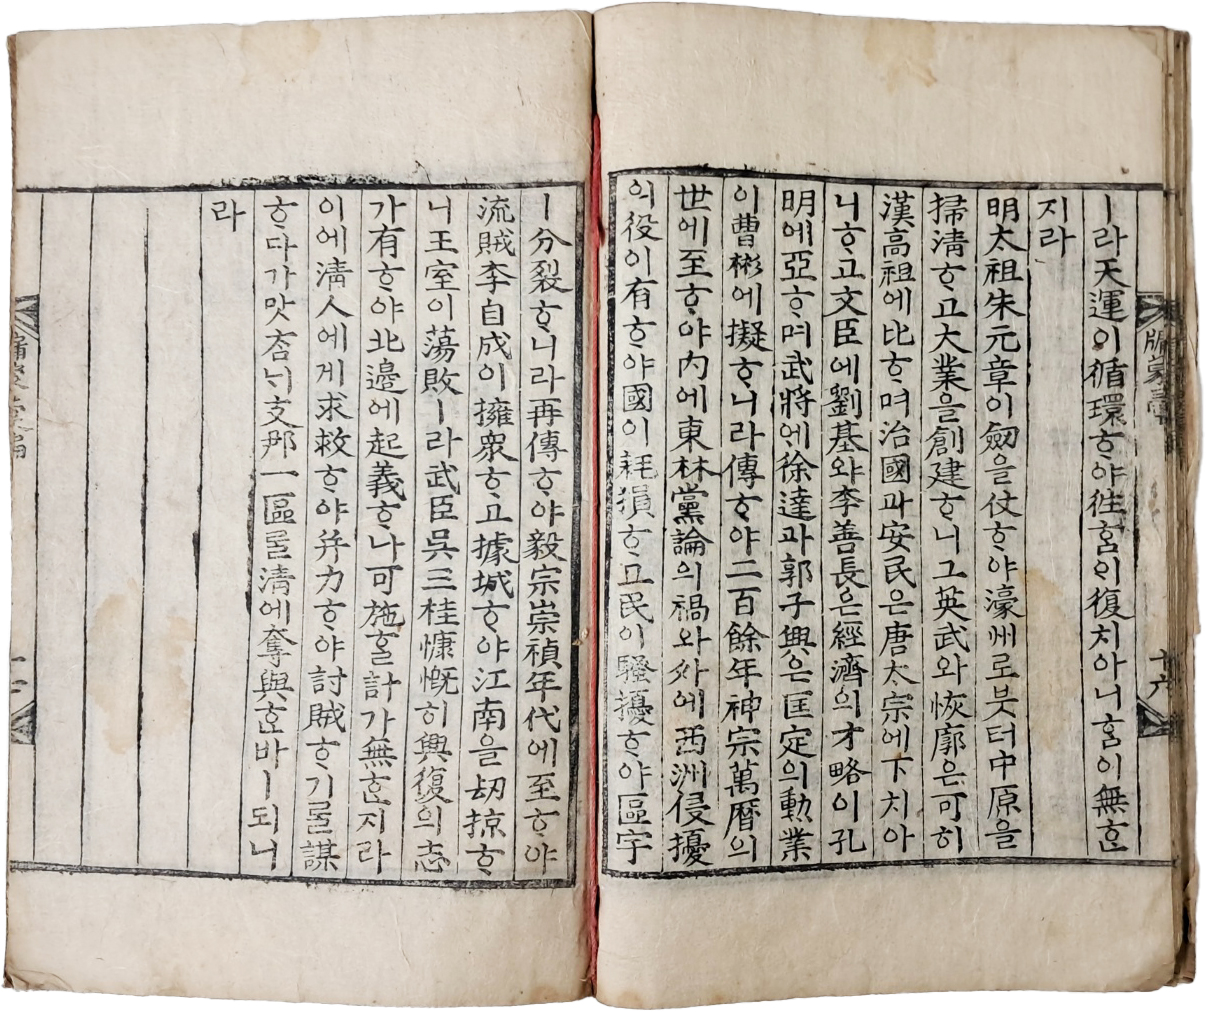 ㅣ라天運이循環ᄒᆞ야往홈이復치아니홈이無ᄒᆞᆫ
지라
明太祖朱元章이劒을仗ᄒᆞ야濠州로붓터中原을
掃淸ᄒᆞ고大業을創建ᄒᆞ니그英武와恢廓은可히
漢高祖에比ᄒᆞ며治國과安民은唐太宗에下치아
니ᄒᆞ고文臣에劉基와李善長은經濟의才略이孔
明에亞ᄒᆞ며武將에徐達과郭子興은匡定의勳業
이曹彬에擬ᄒᆞ니라傳ᄒᆞ야二百餘年神宗萬曆의
世에至ᄒᆞ야內에東林黨論의禍와外에西洲侵擾
의役이有ᄒᆞ야國이耗損ᄒᆞ고民이騷擾ᄒᆞ야區宇
ㅣ分裂ᄒᆞ니라再傳ᄒᆞ야毅宗崇禎年代에至ᄒᆞ야
流賊李自成이擁衆ᄒᆞ고據城ᄒᆞ야江南을劫掠ᄒᆞ
니王室이蕩敗ㅣ라武臣吳三桂慷慨히興復의志
가有ᄒᆞ야北邊에起義ᄒᆞ나可施ᄒᆞᆯ計가無ᄒᆞᆫ지라
이에淸人에게求救ᄒᆞ야幷力ᄒᆞ야討賊ᄒᆞ기ᄅᆞᆯ謀
ᄒᆞ다가맛ᄎᆞᆷᄂᆡ支那一區ᄅᆞᆯ淸에奪與ᄒᆞᆫ바ㅣ되니
라
十六